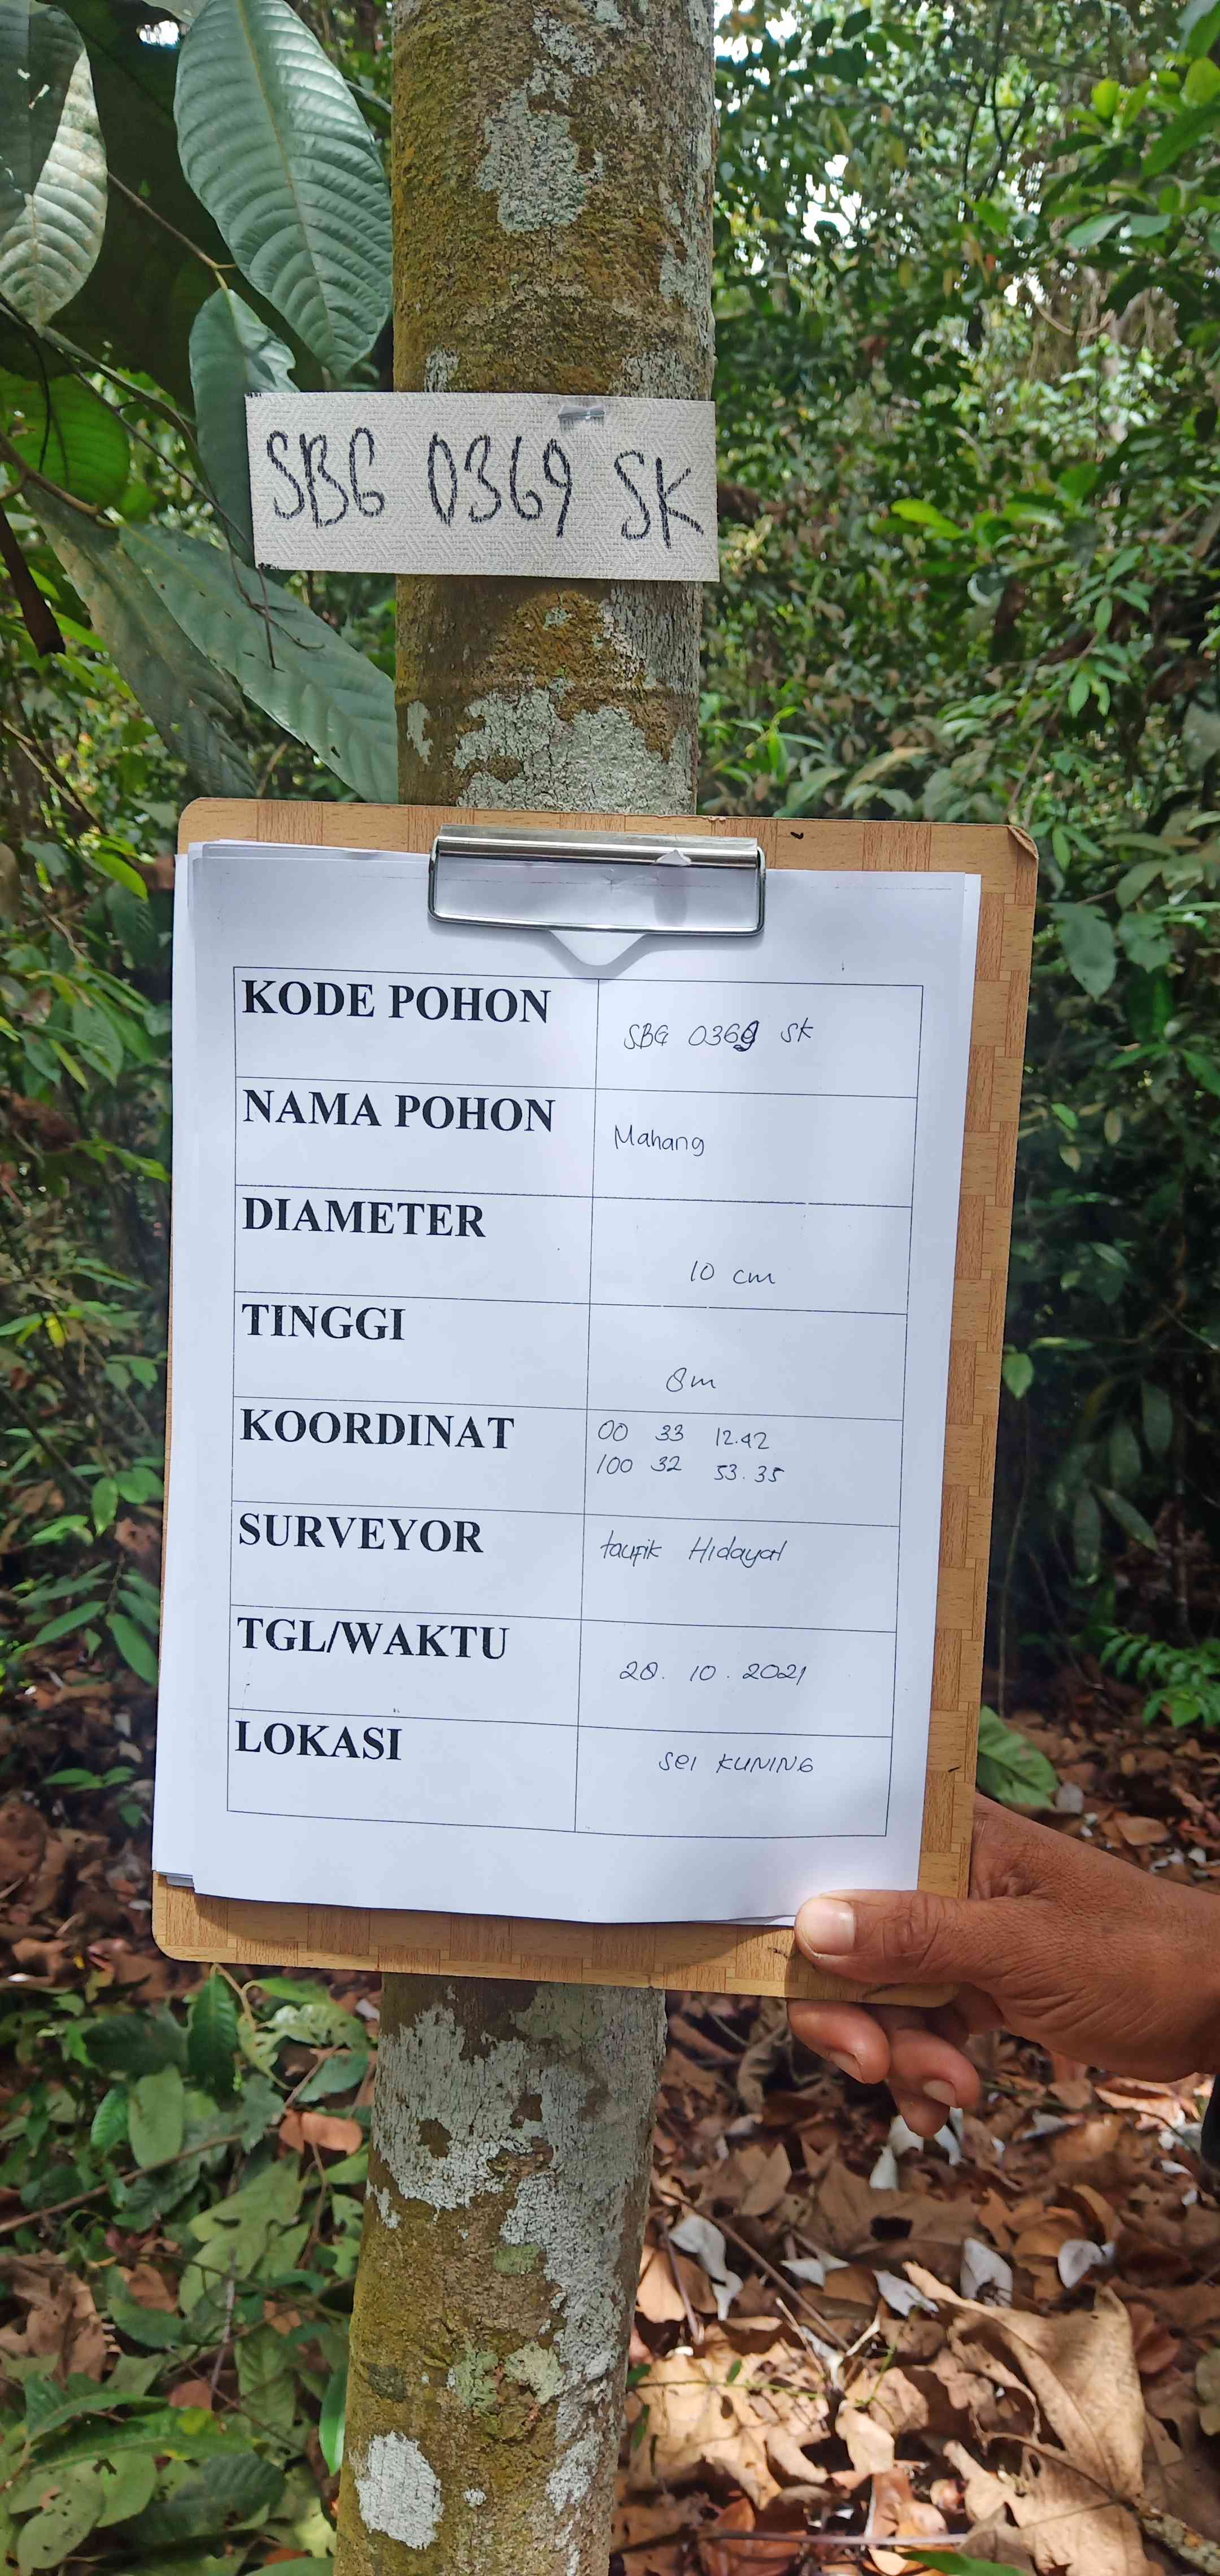 SBG 0369 SK
KODE POHON
SBG 0369 SK
NAMA POHON
Mahang
DIAMETER
10 cm
TINGGI
8m
KOORDINAT
00 33 12.42
100 32 53.35
SURVEYOR
taufik Hidayat
TGL/WAKTU
28. 10. 2021
LOKASI
sei KUNING